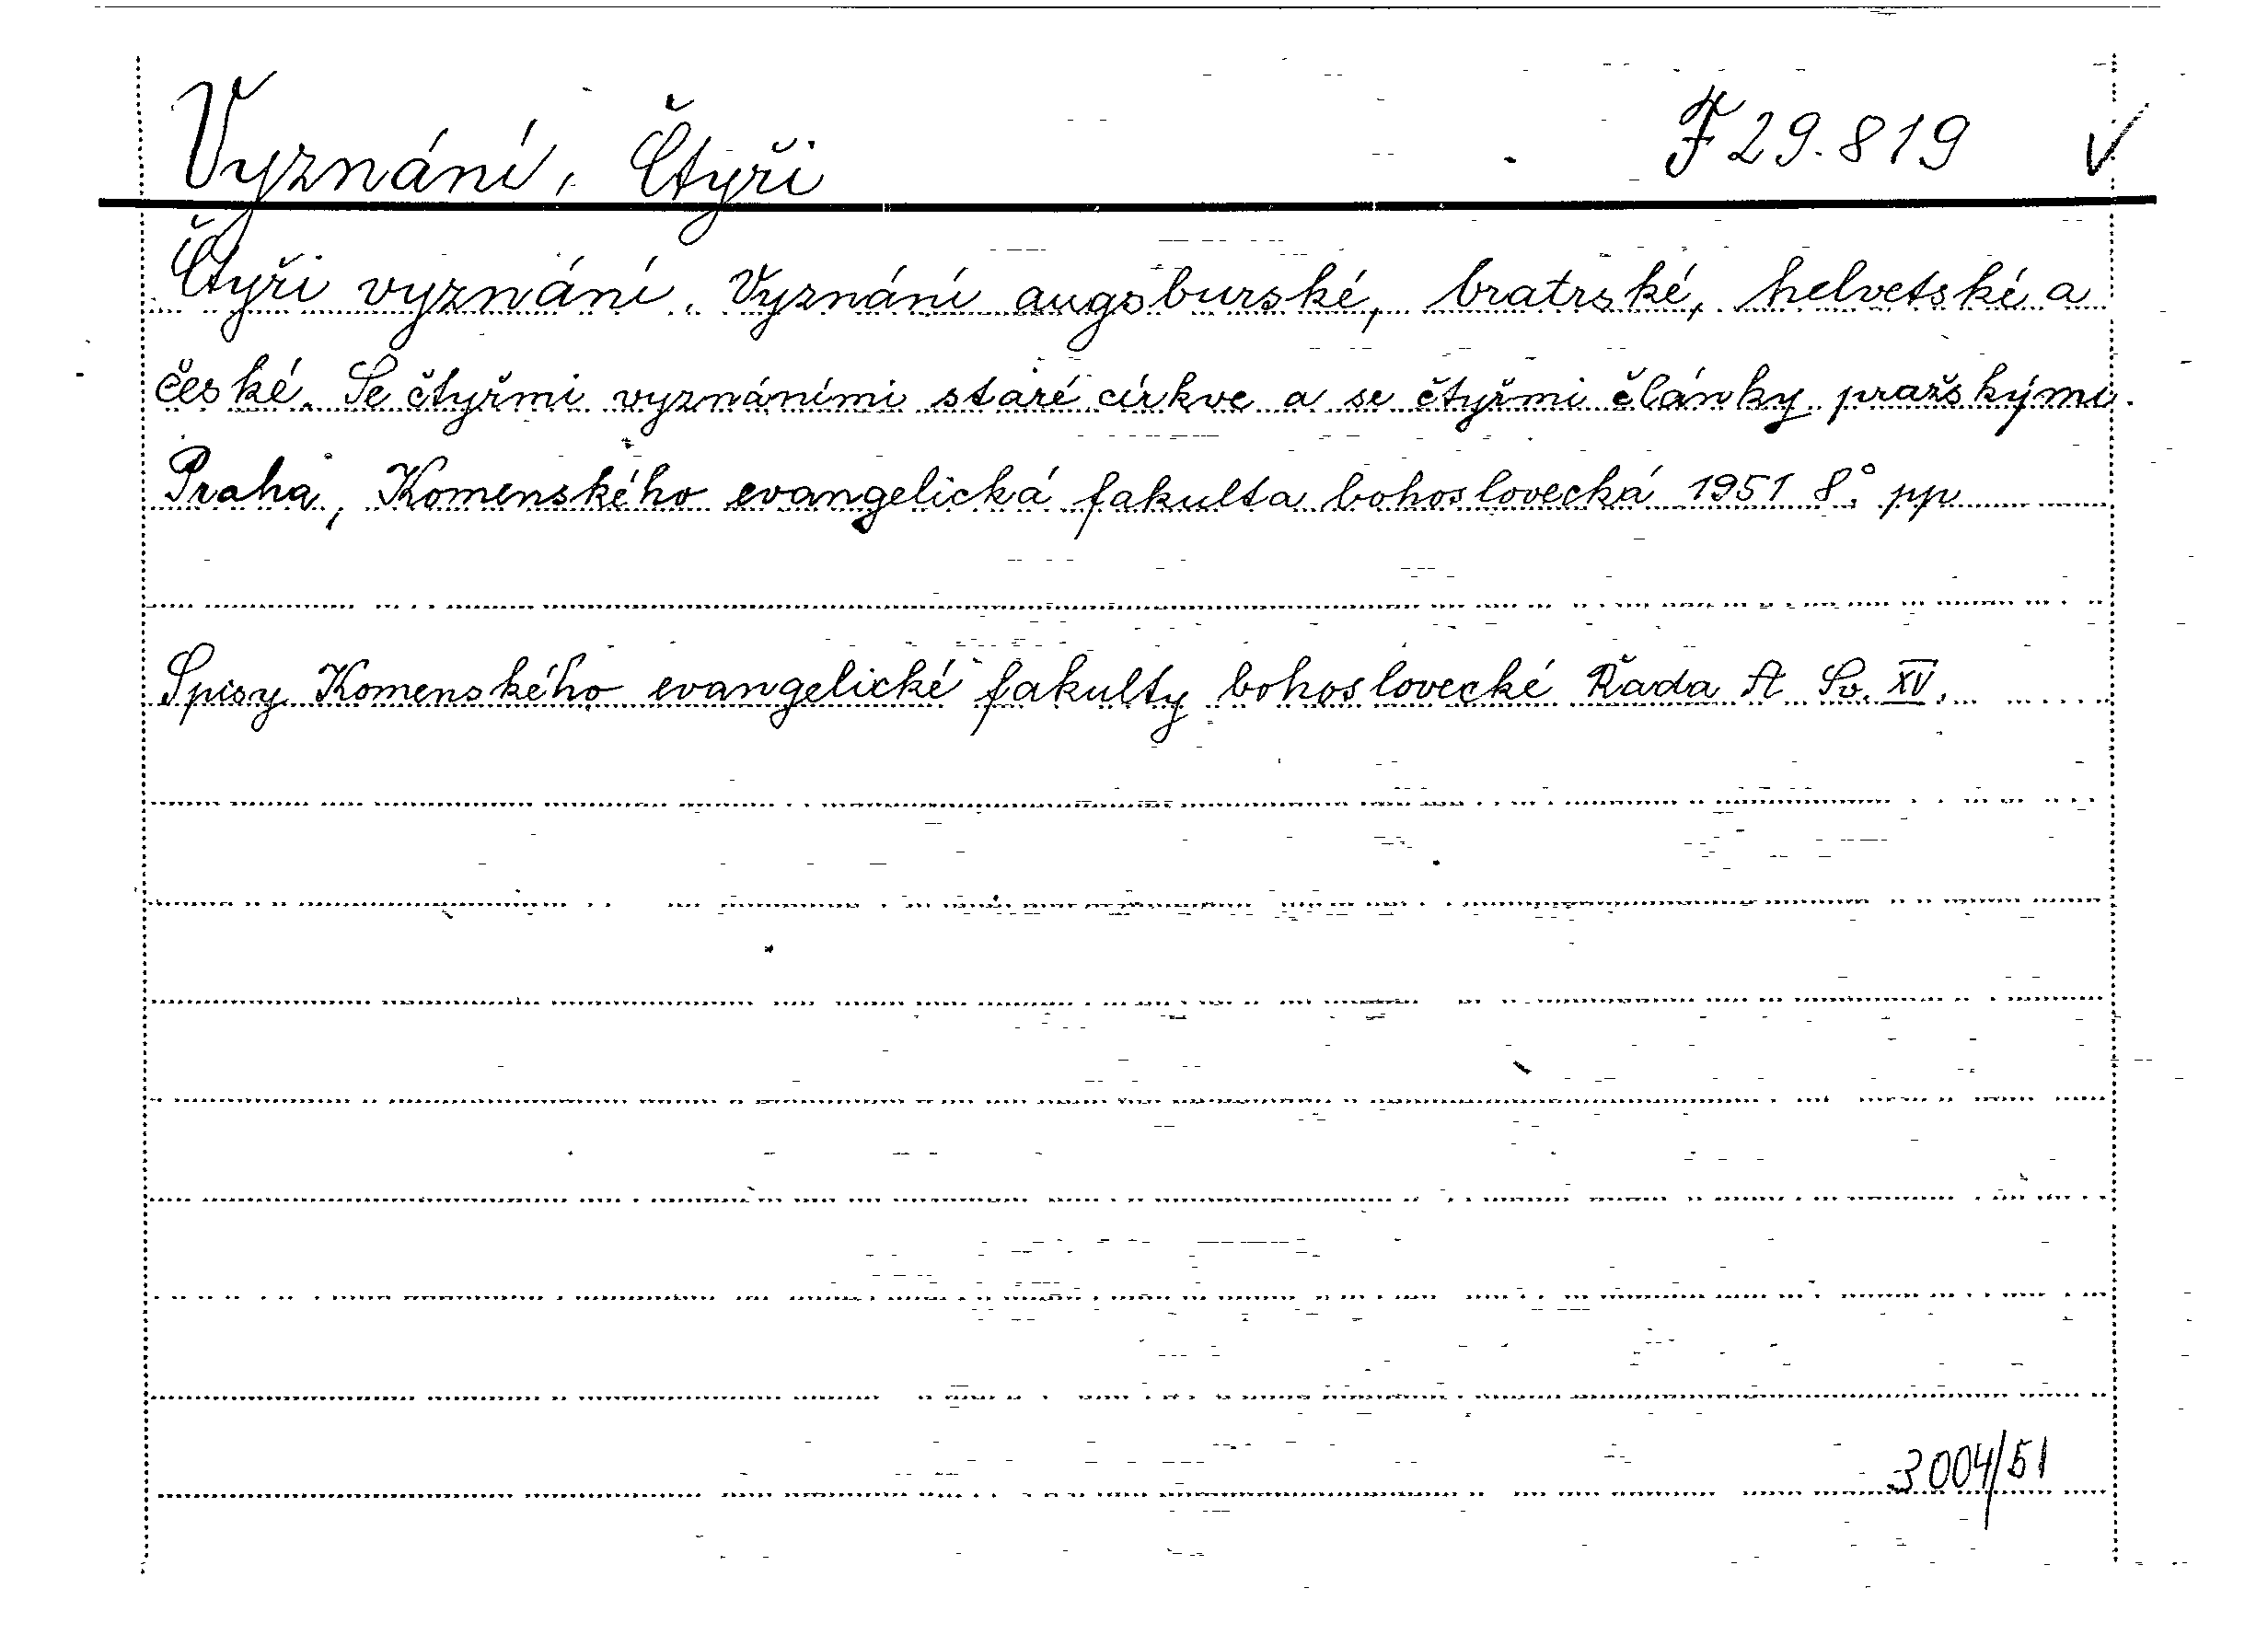 Vyznání, Čtyři F 29.819 √
Čtyři vyznání. Vyznání augsburské, bratrské, helvetské a
české. Se čtyřmi vyznáními staré církve a se čtyřmi články pražskými.
Praha, Komenského evangelická fakulta bohoslovecká 1951 8° pp
Spisy Komenského evangelické fakulty bohoslovecké Řada A Sv. XV.
3004/51